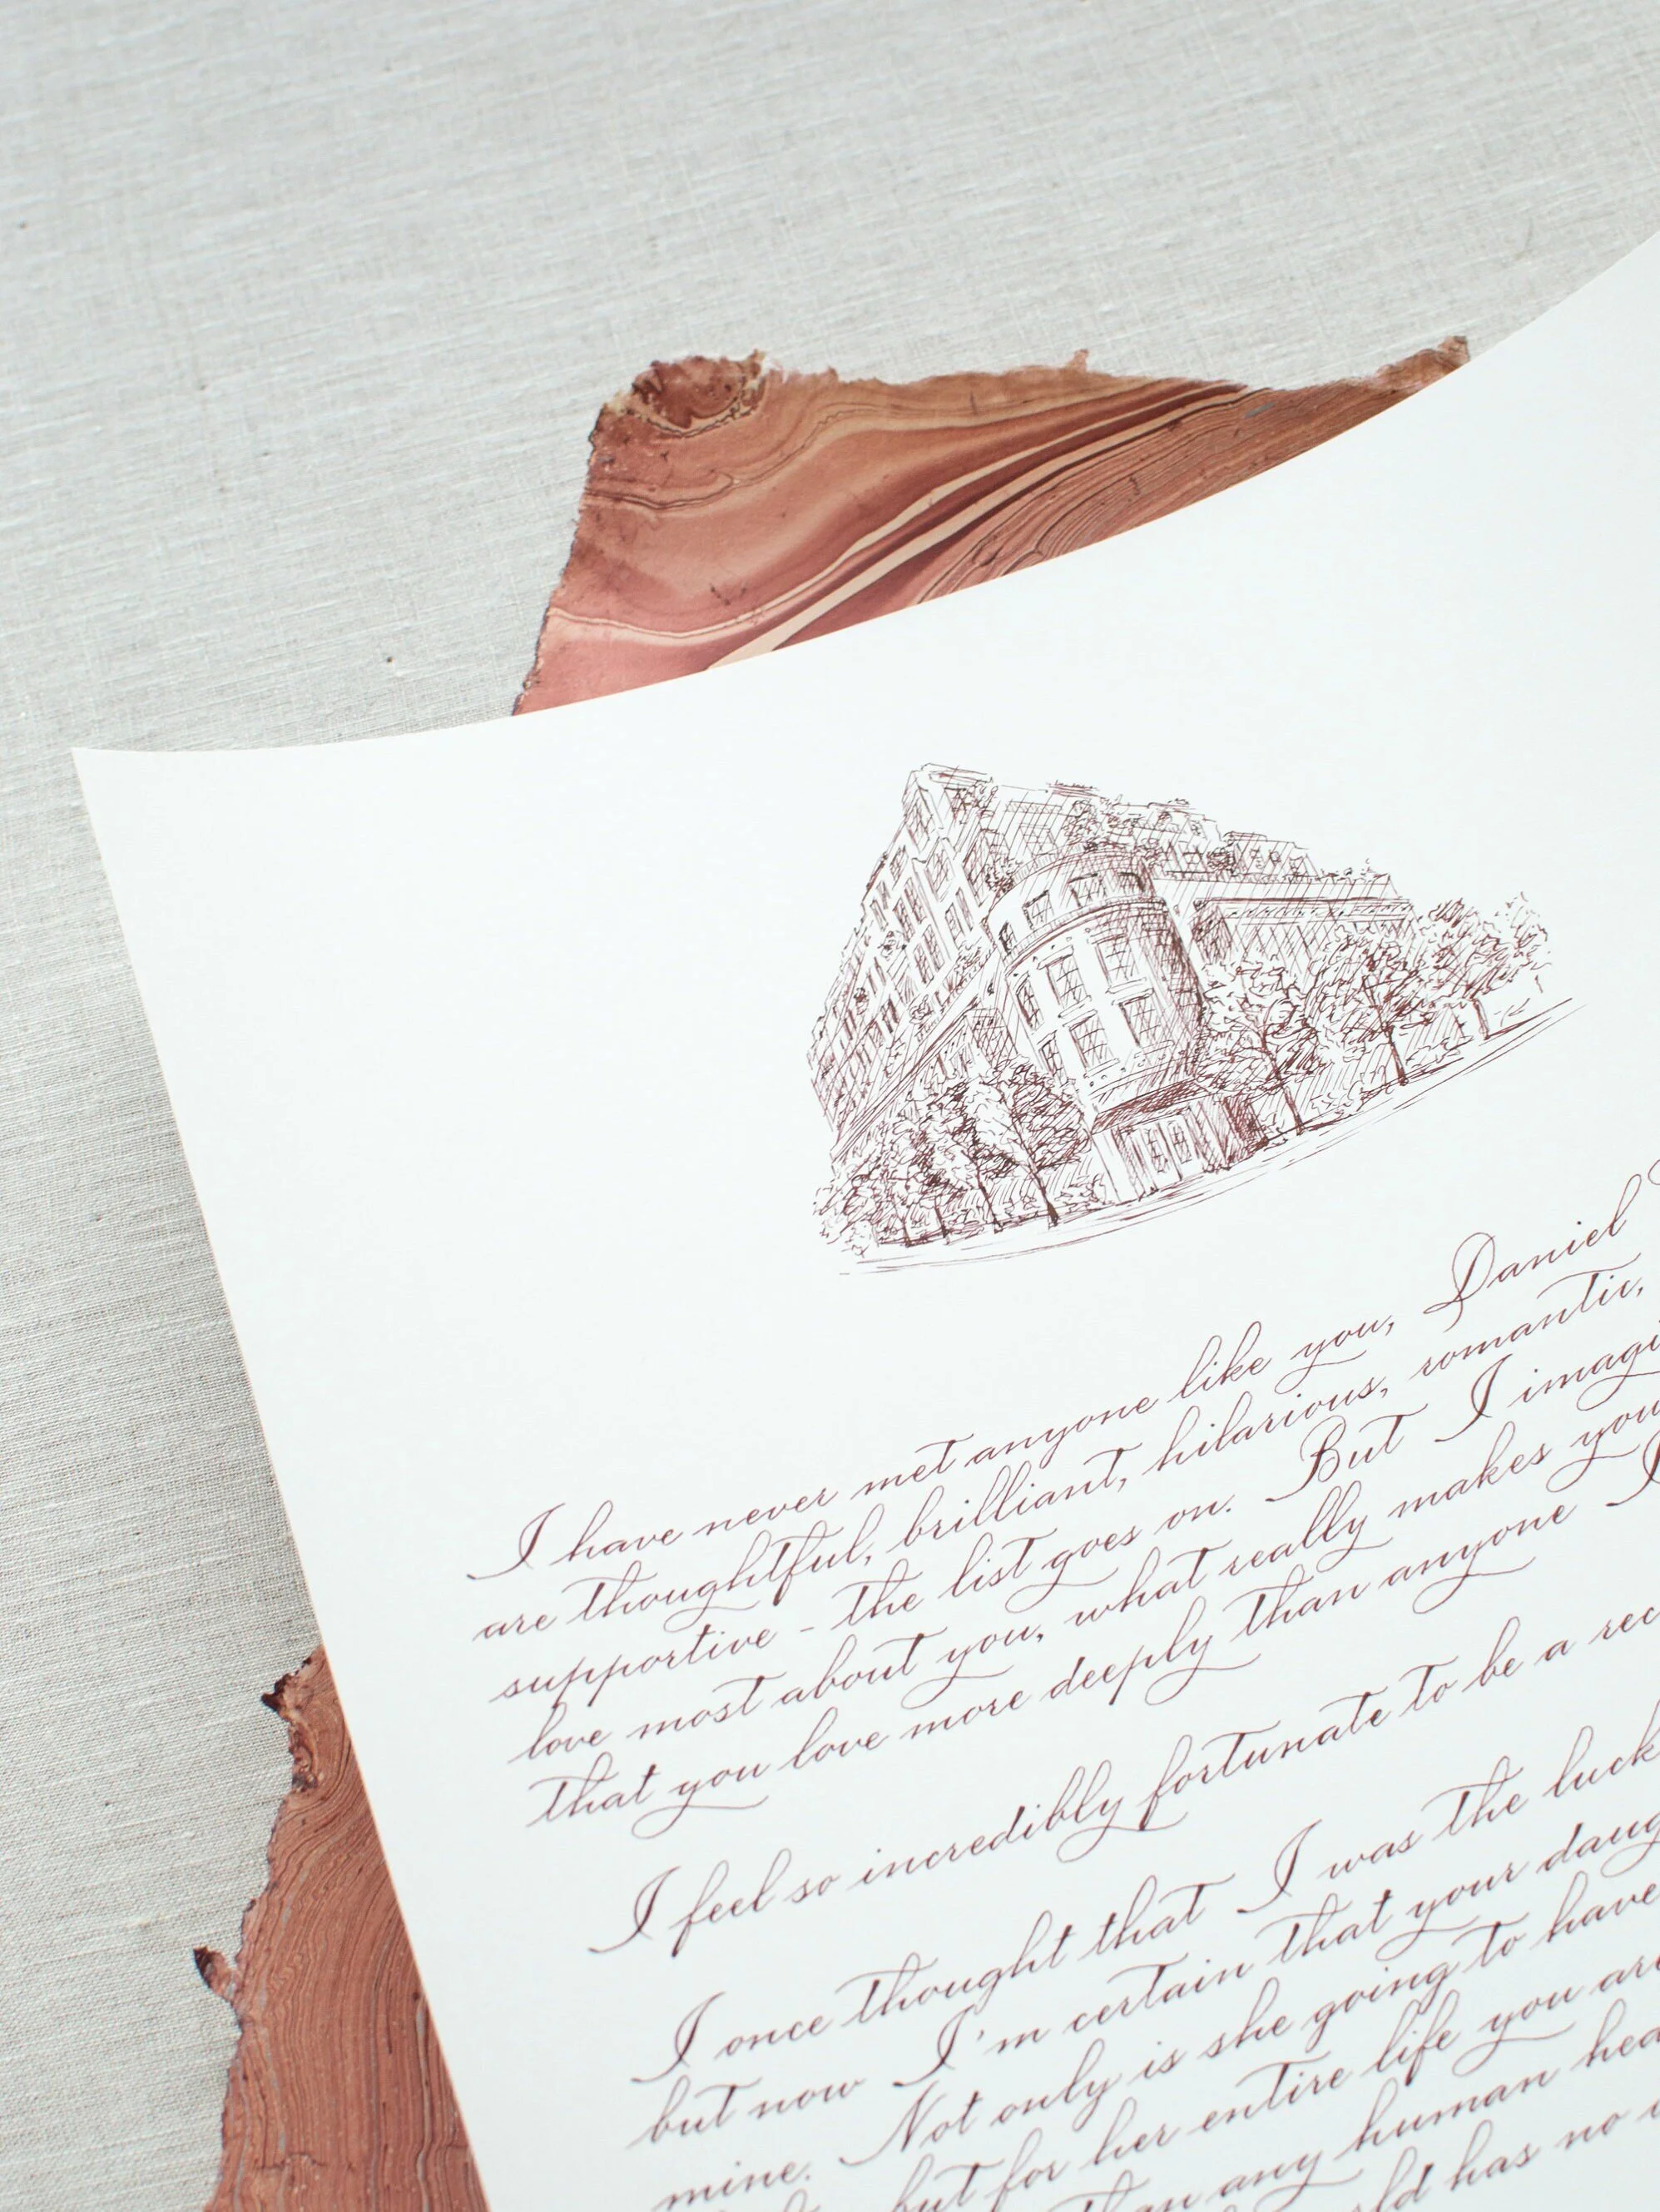 I have never met anyone like you, Daniel
are thoughtful, brilliant, hilarious, romantic,
supportive - the list goes on. But I imagi
love most about you, what really makes you
that you love more deeply than anyone I
I feel so incredibly fortunate to be a rec
I once thought that I was the luck
but now I'm certain that your daug
mine. Not only is she going to have
but for her entire life you are
than any human hea
ld has no